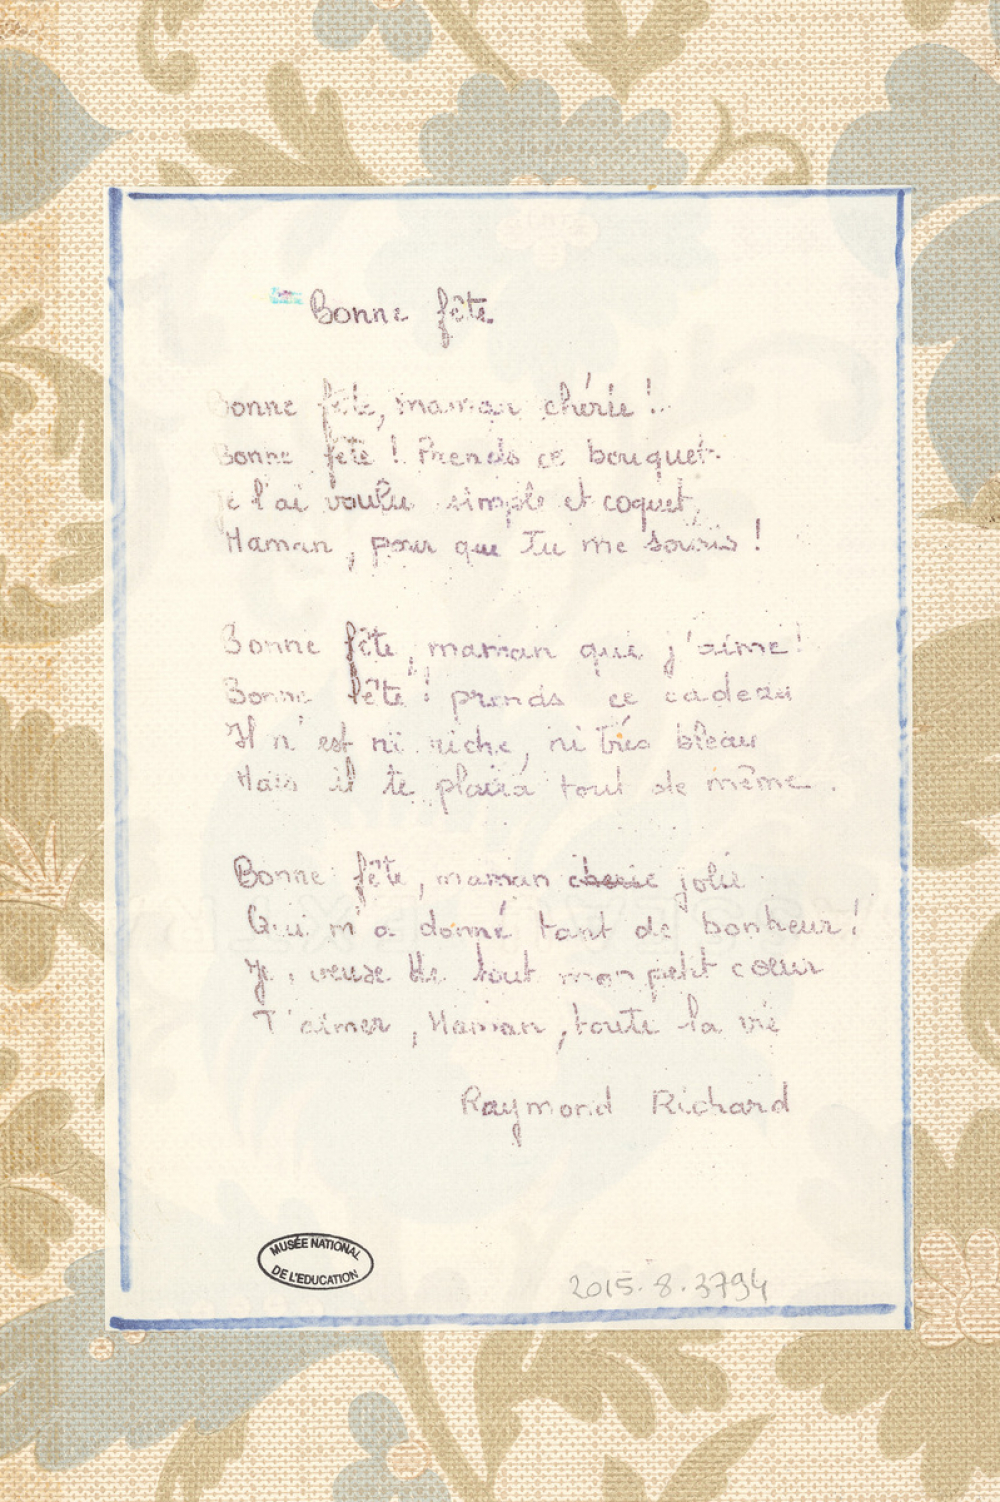 Bonne fête
Bonne fête, maman chérie !
Bonne fête ! Prends ce bouquet
Je l'ai voulu simple et coquet,
Maman, pour que Tu me souris !
Bonne fête, maman que j'aime !
Bonne fête ! prends ce cadeau
Il n'est ni riche, ni très bleau
Mais il te plaira tout de même.
Bonne fête, maman cherie jolie
Qui m'a donné tant de bonheur !
Je veuse de tout mon petit cœur
T'aimer, Maman, toute la vie
Raymond Richard
MUSÉE NATIONAL
DE L'EDUCATION
2015.8.3794